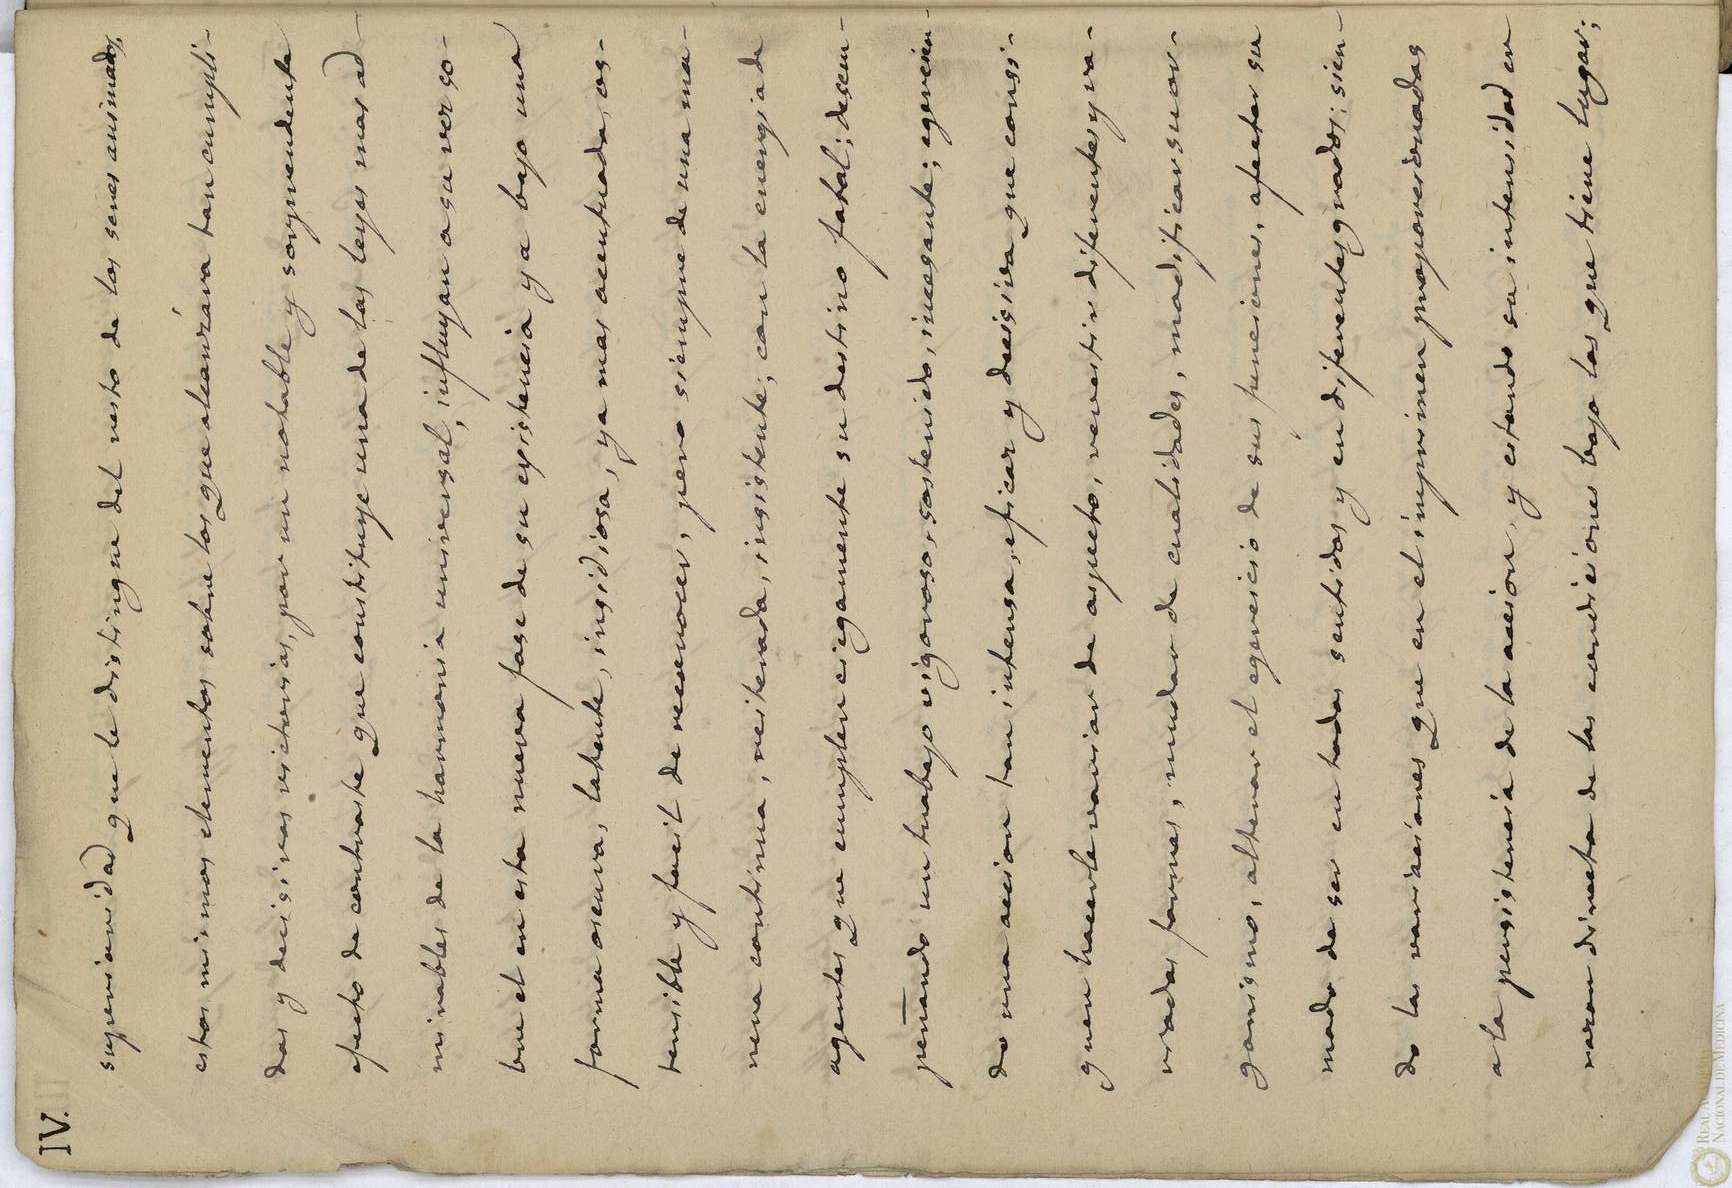 IV.
superioridad que le distingue del resto de los seres animados,
estos mismos elementos sobre los que alcanzára tan cumpli-
das y decisivas victorias, por un notable y sorprendente
efecto de contraste que constituye una de las leyes mas ad-
mirables de la harmonia universal, influyan a su vez so-
bre él en esta nueva fase de su existencia ya bajo una
forma oscura, latente, insidiosa, ya mas acentuada, os-
tensible y facil de reconocer, pero siempre de una ma-
nera continua, reiterada, insistente, con la energia de
agentes que cumplen ciegamente su destino fatal; desem-
peñando un trabajo vigoroso, sostenido, incesante; egercien-
do una accion tan intensa, eficaz y decisiva que consi-
guen hacerle variar de aspecto, revestir diferentes y va-
riadas formas, mudar de cualidades, modificar su or-
ganismo, alterar el egercicio de sus funciones, afectar su
modo de ser en todos sentidos y en diferentes grados: sien-
do las variaciones que en el imprimen proporcionadas
a la persistencia de la accion, y estando su intensidad en
razon directa de las condiciones bajo las que tiene lugar;
REAL ACADEMIA
NACIONAL DE MEDICINA